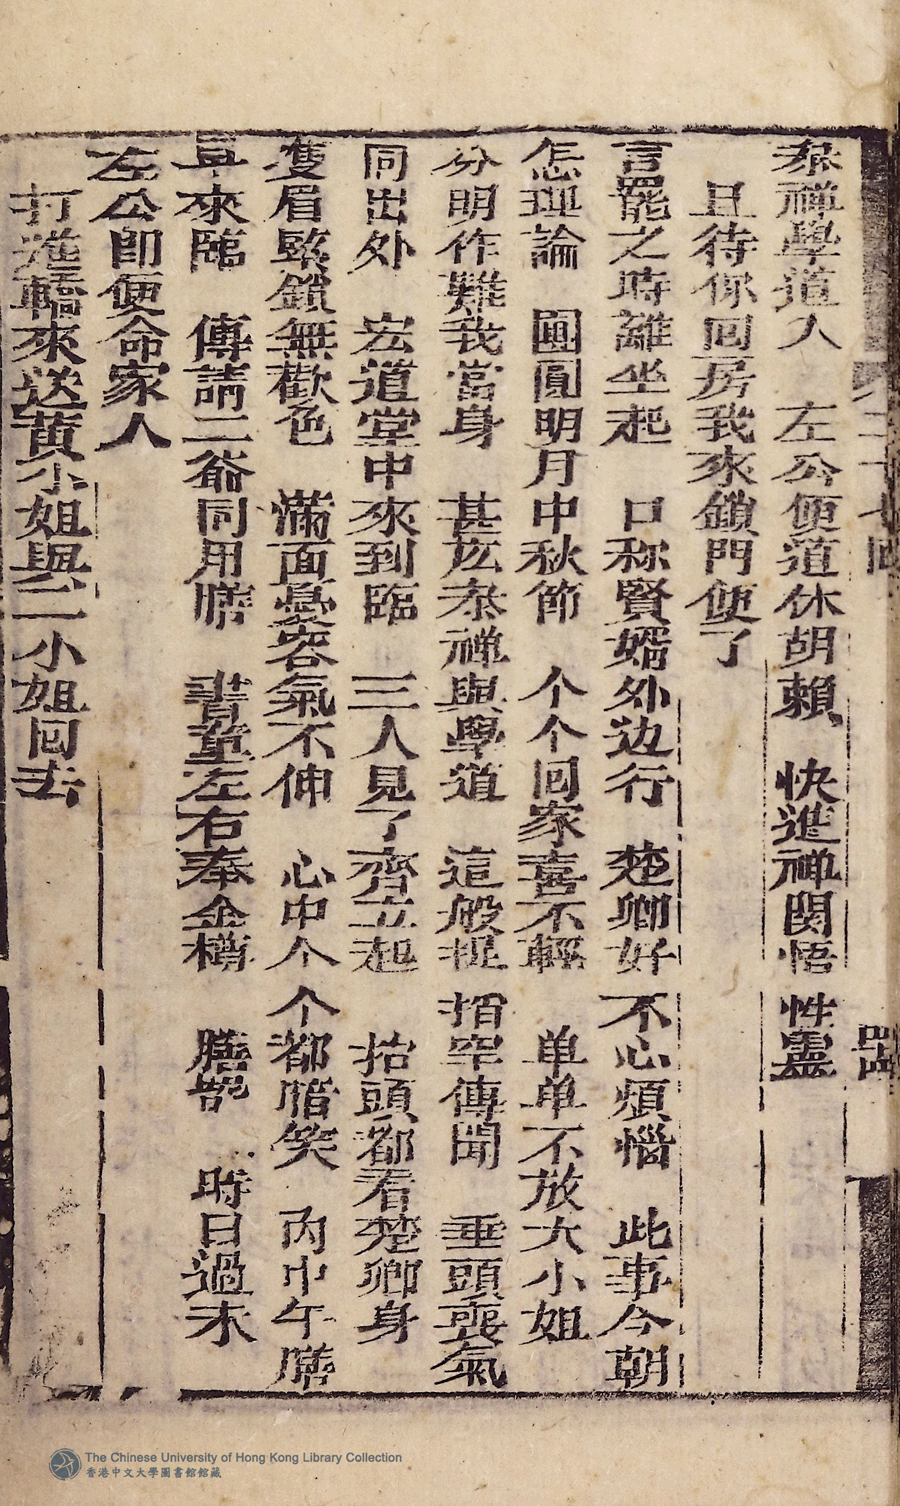 第二十七回
四
叅禅學道人　左公便道休胡賴　快進禅関悟性灵
且待你回房我來鎖門便了
言罷之時離坐起　口称賢婿外边行　楚卿好不心煩惱　此事今朝
怎理論　團圓明月中秋節　个个回家喜不輕　单单不放大小姐
分明作難我當身　甚庅叅禅與學道　這般捏揑罕傳聞　垂頭喪氣
同出外　宏道堂中來到臨　三人見了齊立起　抬頭都看楚卿身
双眉緊鎖無歡色　滿面憂容氣不伸　心中个个都暗笑　丙中午膳
早來臨　傳請二爺同用膳　書童左右奉金樽　膳罷　時日過未
左公即便命家人
打進轎來送黄小姐與二小姐回去
The Chinese University of Hong Kong Library Collection
香港中文大學圖書館館藏